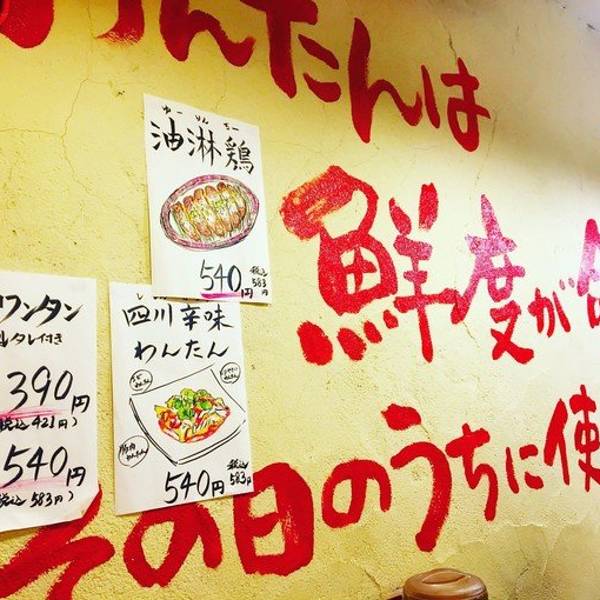 わんたんは
鮮度が
その日のうちに使
ゆーりんちー
油淋鶏
540円
税込
583円
四川辛味
わんたん
豚肉
わんたん
540円
税込
583円
ワンタン
タレ付き
390円
税込 421円)
540円
税込 583円)